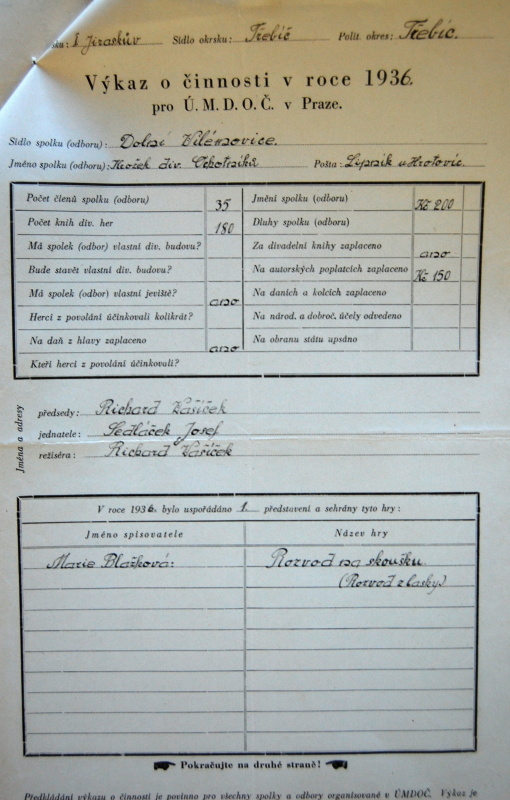 I. Jiráskův Sídlo okrsku: Třebíč Polit. okres: Třebíč.
Výkaz o činnosti v roce 1936.
pro Ú. M. D. O. Č. v Praze.
Sídlo spolku (odboru): Dolní Vilémovice.
Jméno spolku (odboru): Kroček div. Ochotníků Pošta: Lipník u Hrotovic.
Počet členů spolku (odboru) 35 Jmění spolku (odboru) Kč 200
Počet knih div. her 180 Dluhy spolku (odboru)
Má spolek (odbor) vlastní div. budovu? Za divadelní knihy zaplaceno ano
Bude stavět vlastní div. budovu? Na autorských poplatcích zaplaceno Kč 150
Má spolek (odbor) vlastní jeviště? ano Na daních a kolcích zaplaceno
Herci z povolání účinkovali kolikrát? Na národ. a dobroč. účely odvedeno
Na daň z hlavy zaplaceno ano Na obranu státu upsáno
Kteří herci z povolání účinkovali?
Jména a adresy
předsedy: Richard Vašíček
jednatele: Sedláček Josef
režiséra: Richard Vašíček
V roce 1936. bylo uspořádáno 1. představení a sehrány tyto hry:
Jméno spisovatele Název hry
Marie Blažková: Rozvod na skoušku.
(Rozvod z lásky)
Pokračujte na druhé straně!
Předkládání výkazu o činnosti je povinno pro všechny spolky a odbory organisované v ÚMDOČ. Výkaz je